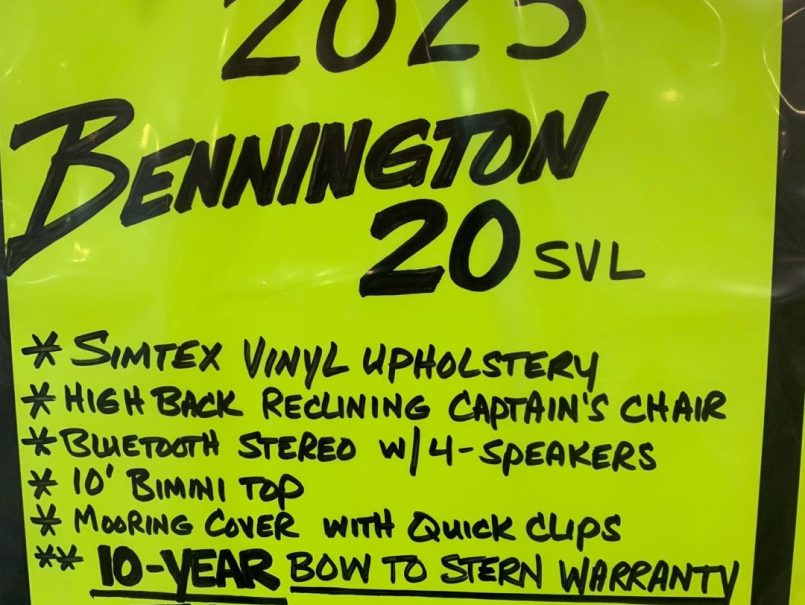 2023
BENNINGTON
20 SVL
* SIMTEX VINYL UPHOLSTERY
* HIGH BACK RECLINING CAPTAIN'S CHAIR
* BLUETOOTH STEREO W/ 4-SPEAKERS
* 10' BIMINI TOP
* MOORING COVER WITH QUICK CLIPS
** 10-YEAR BOW TO STERN WARRANTY